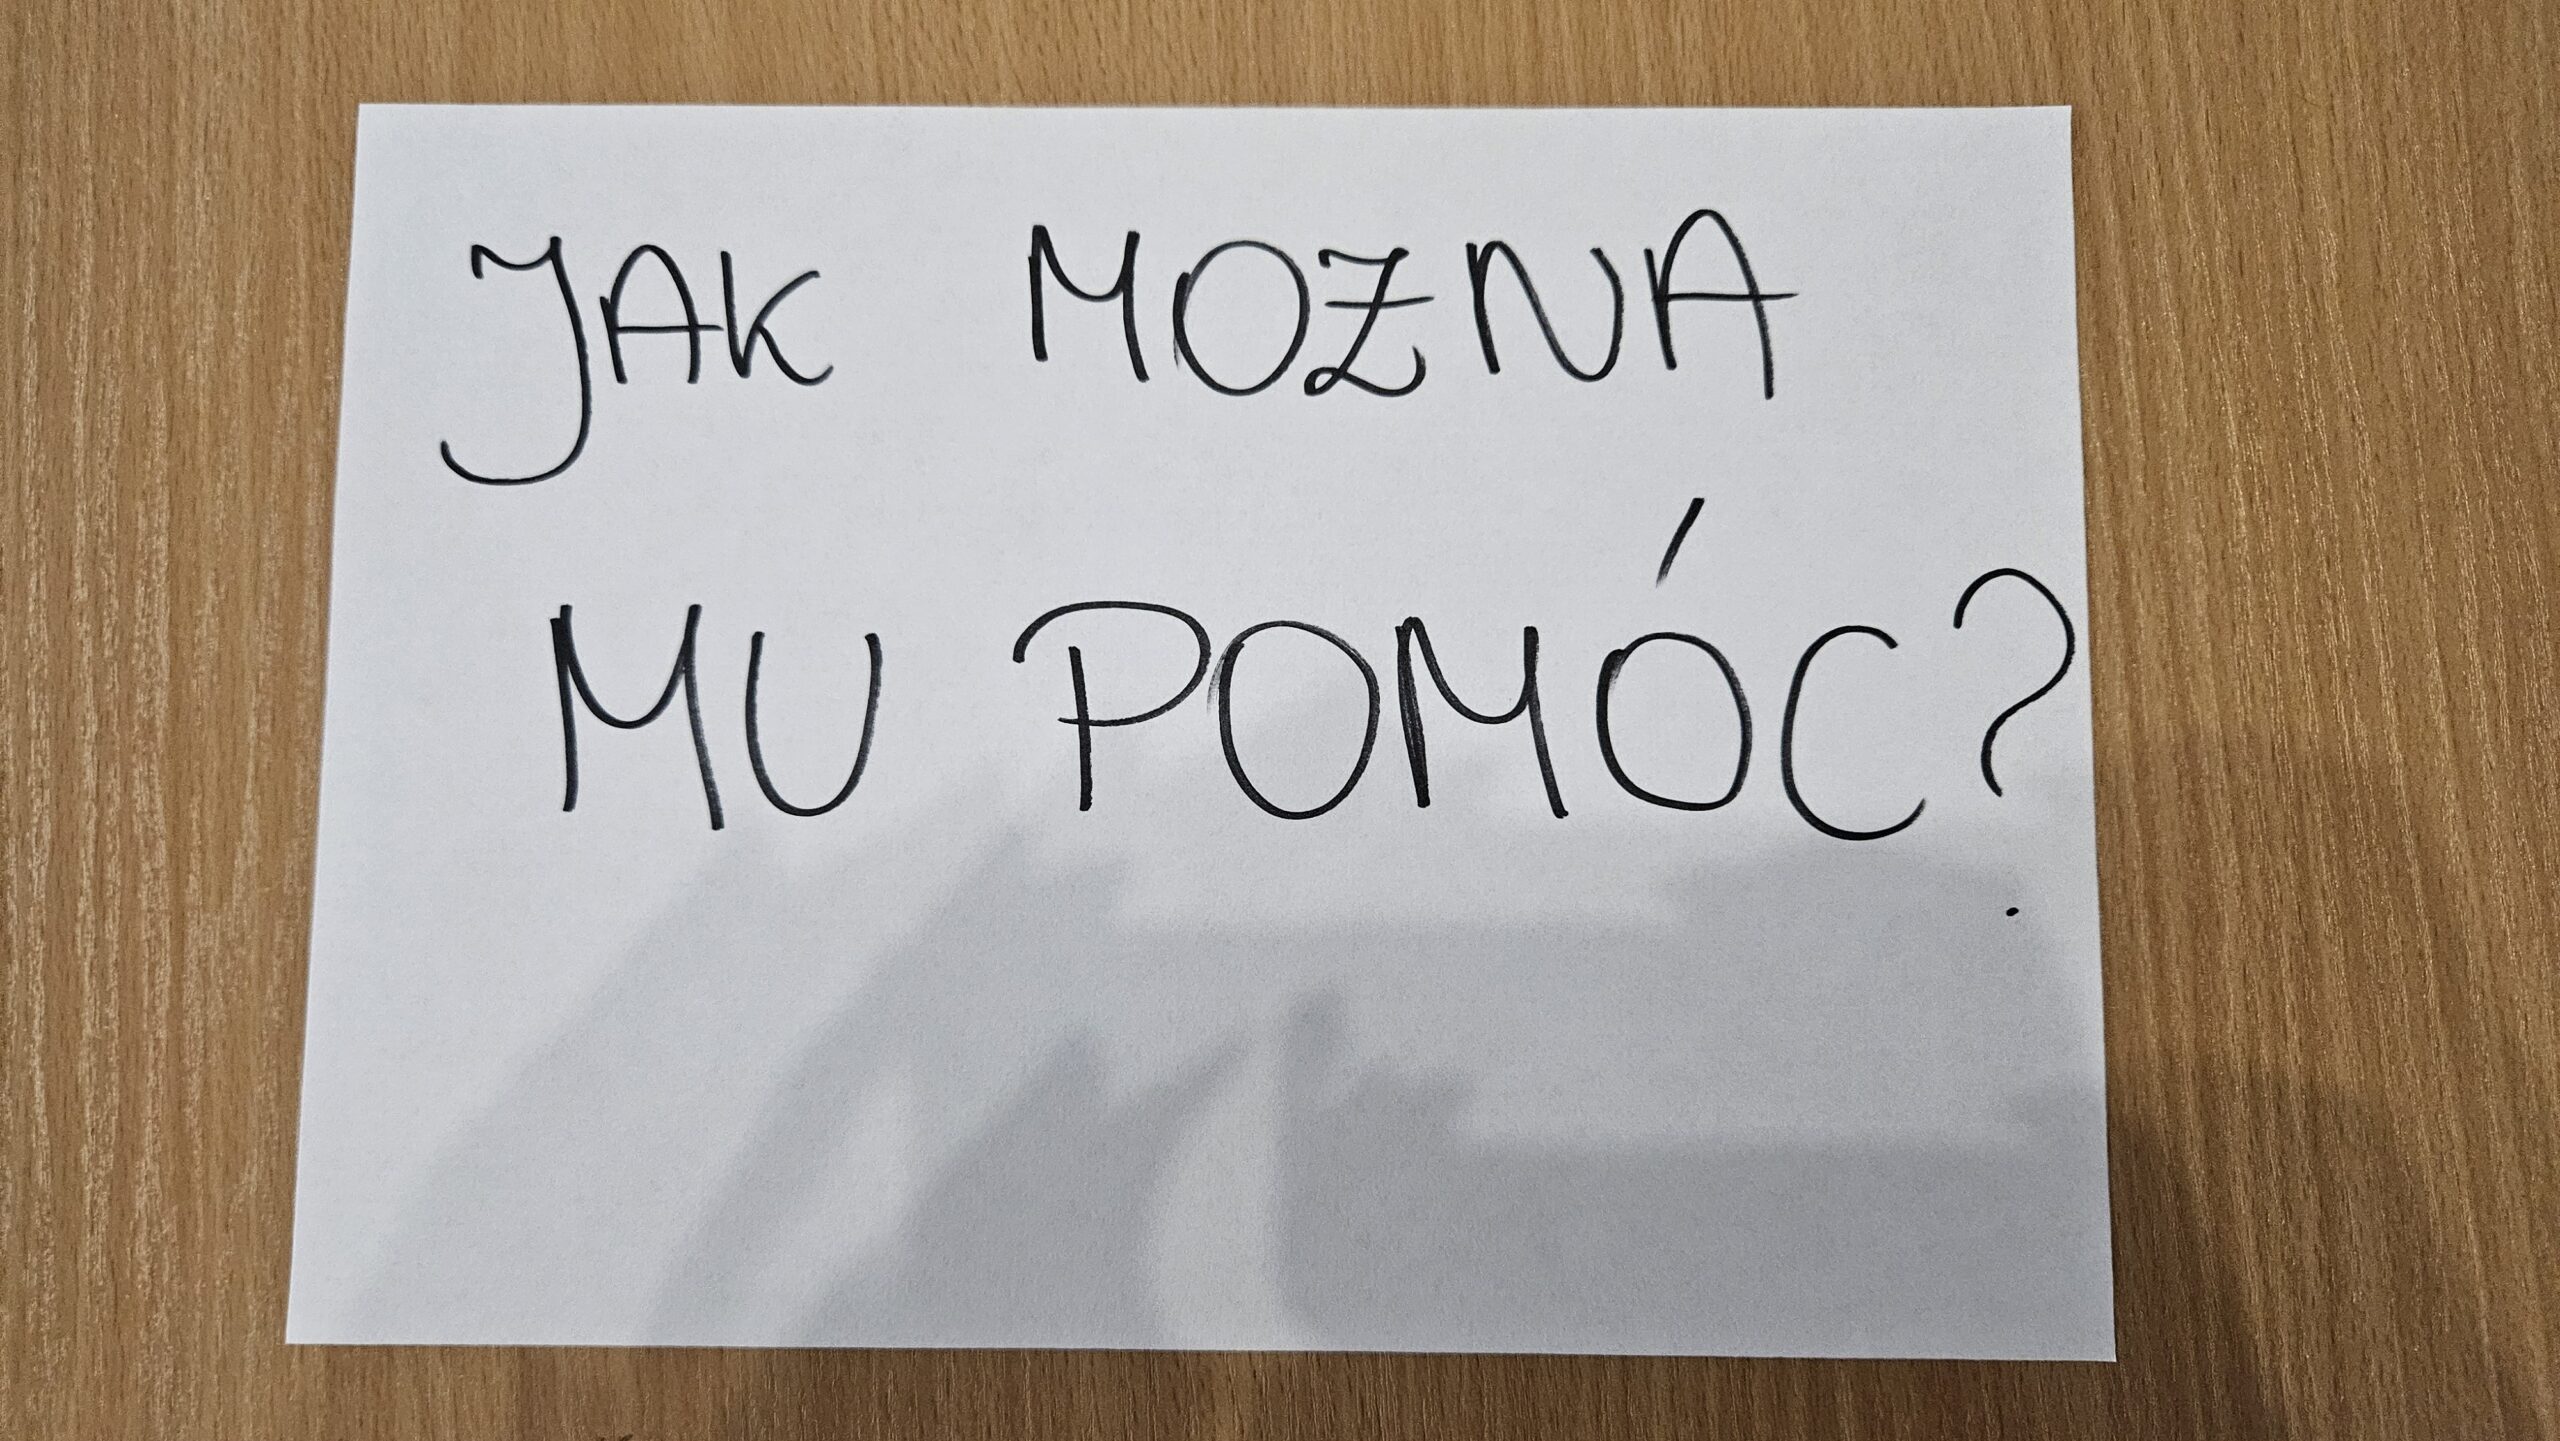 JAK MOŻNA
MU POMÓC?